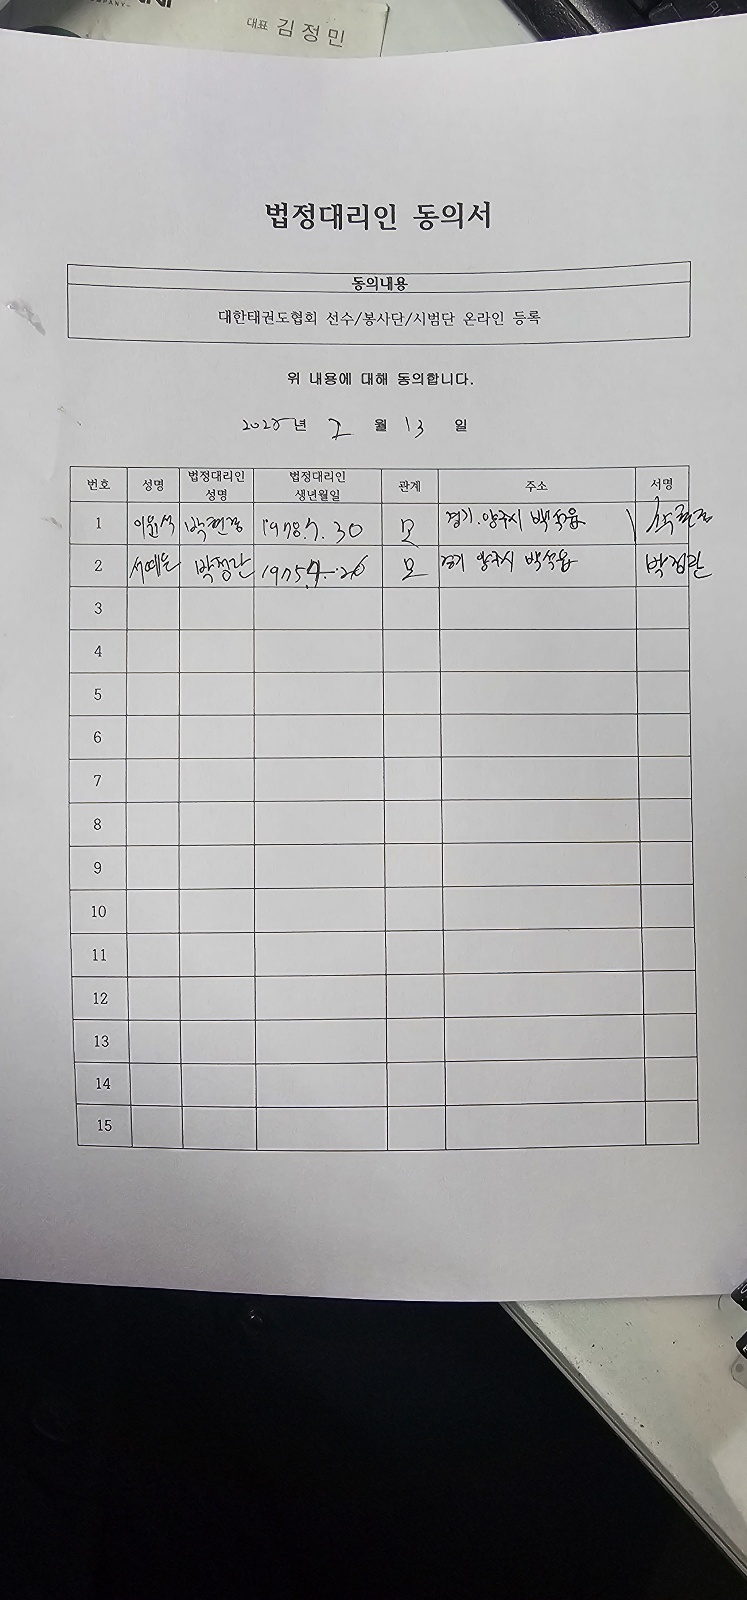 대표 김정민
법정대리인 동의서
동의내용
대한태권도협회 선수/봉사단/시범단 온라인 등록
위 내용에 대해 동의합니다.
년 월 13 일
번호 성명 법정대리인 성명 법정대리인 생년월일 관계 주소 서명
1 이윤석 박현정 1978.7.30 모 경기.양주시 백석읍 박현정
2 서예은 박정란 모 경기 양주시 백석읍 박정란
3
4
5
6
7
8
9
10
11
12
13
14
15